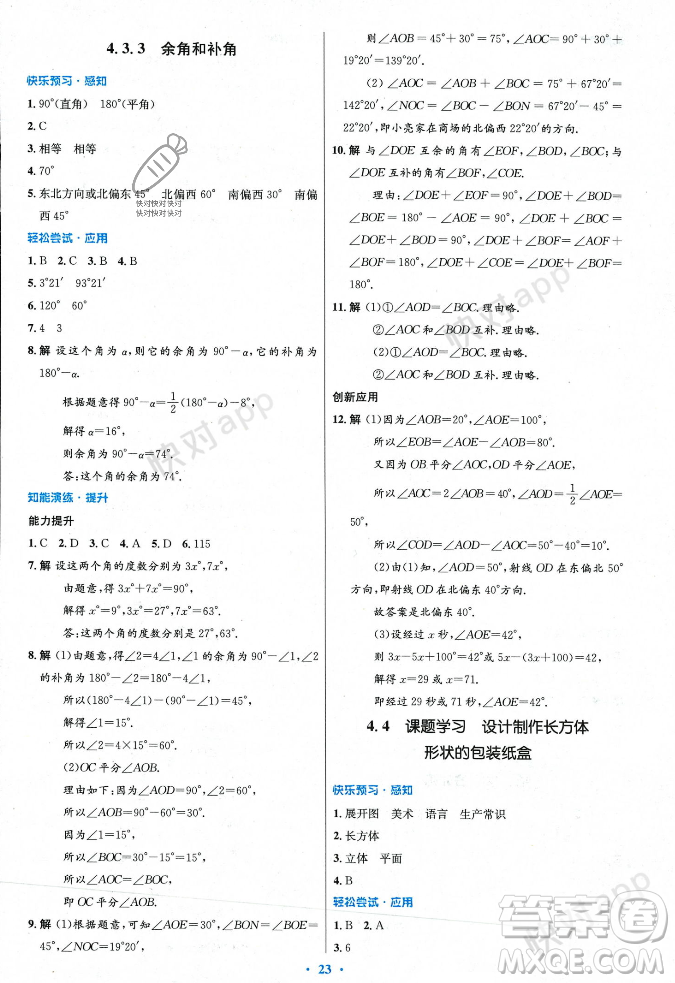 4.3.3 余角和补角
快乐预习·感知
1. 90°(直角) 180°(平角)
2. C
3. 相等 相等
4. 70°
5. 东北方向或北偏东45° 北偏西60° 南偏西30° 南偏
西45°
快对快对快对
快对快对快对
轻松尝试·应用
1. B 2. C 3. B 4. B
5. 3°21′ 93°21′
6. 120° 60°
7. 4 3
8. 解 设这个角为α,则它的余角为90°-α,它的补角为
180°-α.
根据题意得90°-α=1/2(180°-α)-8°,
解得α=16°,
则余角为90°-α=74°.
答:这个角的余角为74°.
知能演练·提升
能力提升
1. C 2. D 3. C 4. A 5. D 6. 115
7. 解 设这两个角的度数分别为3x°,7x°,
由题意,得3x°+7x°=90°,
解得x°=9°,3x°=27°,7x°=63°.
答:这两个角的度数分别是27°,63°.
8. 解 (1)由题意,得∠2=4∠1,∠2的余角为90°-∠1,∠2
的补角为180°-∠2=180°-4∠1,
所以(180°-4∠1)-(90°-∠1)=45°,
解得∠1=15°,
所以∠2=4×15°=60°.
(2)OC平分∠AOB.
理由如下:因为∠AOD=90°,∠2=60°,
所以∠AOB=90°-60°=30°.
因为∠1=15°,
所以∠AOC=30°-15°=15°,
所以∠BOC=∠1=15°,
所以∠BOC=∠AOC,
即OC平分∠AOB.
9. 解 (1)根据题意,可知∠AOE=30°,∠BON=∠BOE=
45°,∠NOC=19°20′,
则∠AOB=∠AOE+∠BOE=30°+45°=75°,
所以∠AOC=∠AOB+∠BON+∠NOC=75°+45°+
19°20′=139°20′.
(2)∠AOC=∠AOB+∠BOC=75°+67°20′=
142°20′,∠NOC=∠BOC-∠BON=67°20′-45°=
22°20′,即小亮家在商场的北偏西22°20′的方向.
10. 解 与∠DOE互余的角有∠EOF,∠BOD,∠BOC.
与∠DOE互补的角有∠BOF,∠COE.
理由:∠DOE+∠EOF=∠DOF=90°,∠DOE+
∠BOD=180°-∠AOE=90°,∠DOE+∠BOC=
∠DOE+∠BOD=90°,∠DOE+∠BOF=∠AOF+
∠BOF=180°,∠DOE+∠COE=∠DOE+∠DOF=
180°.
11. 解 (1)①∠AOD=∠BOC.理由略.
②∠AOC和∠BOD互补.理由略.
(2)①∠AOD=∠BOC.理由略.
②∠AOC和∠BOD互补.理由略.
创新应用
12. 解 (1)因为∠AOB=20°,∠AOE=100°,
所以∠EOB=∠AOE-∠AOB=80°.
又因为OB平分∠AOC,OD平分∠AOE,
所以∠AOC=2∠AOB=40°,∠AOD=1/2∠AOE=50°,
所以∠COD=∠AOD-∠AOC=50°-40°=10°.
(2)由(1)知,∠AOD=50°,射线OA在北偏东50°
方向,即射线OD在北偏东40°.
故答案是北偏东40°.
(3)设经过x秒,∠AOE=42°,
则3x-5x+100°=42°或5x-(3x+100°)=42°,
解得x=29或x=71.
即经过29秒或71秒,∠AOE=42°.
4.4 课题学习 设计制作长方体
形状的包装纸盒
快乐预习·感知
1. 展开图 美术 语言 生产常识
2. 长方体
3. 立体 平面
4. B
轻松尝试·应用
1. B 2. A
3. 6
23
快对app
快对app
快对app
快对app
答案圈
MXQE.COM